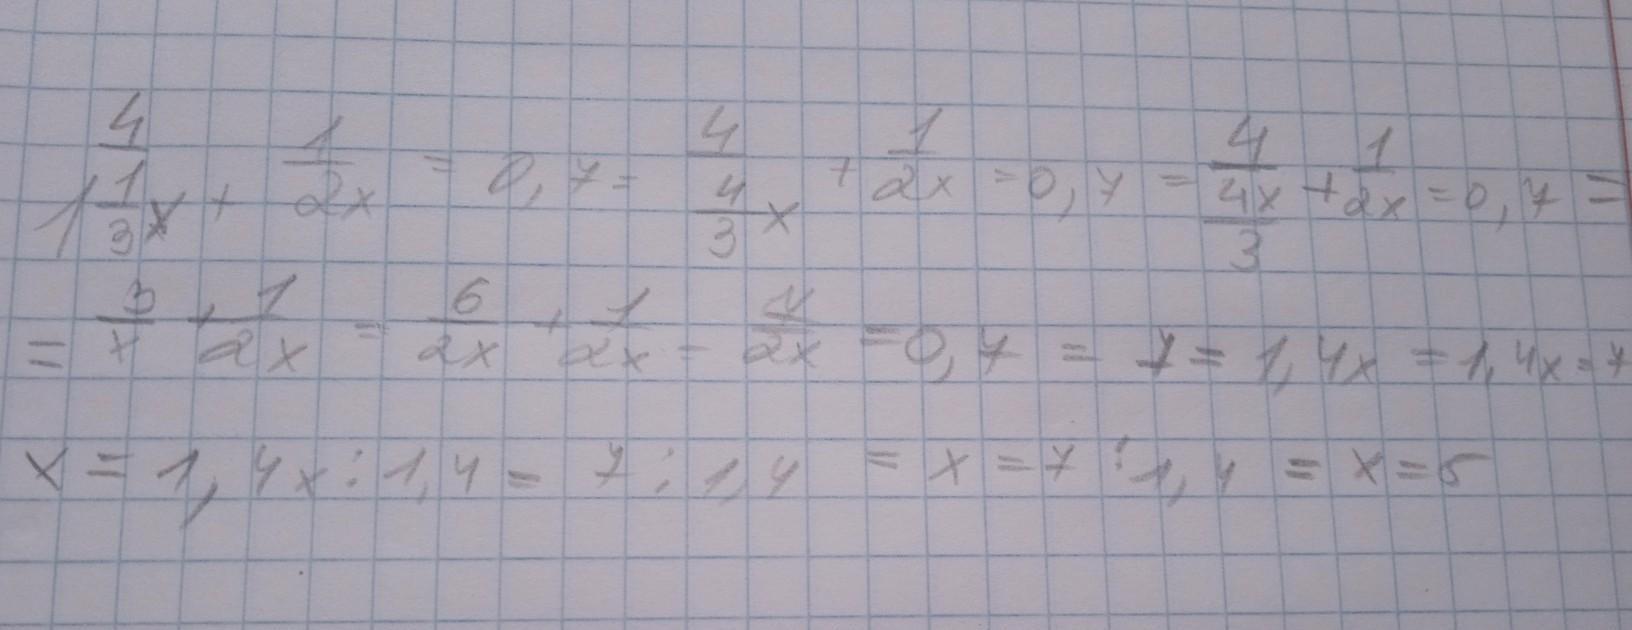 4/(1 1/3 x) + 1/(2x) = 0,7 = 4/(4/3 x) + 1/(2x) = 0,7 = 4/(4x/3) + 1/(2x) = 0,7 =
= 3/x + 1/(2x) = 6/(2x) + 1/(2x) = 7/(2x) = 0,7 = 7 = 1,4x = 1,4x = 7
x = 1,4x : 1,4 = 7 : 1,4 = x = 7 : 1,4 = x = 5